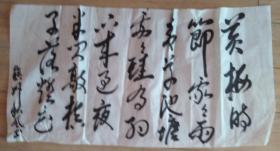 黄梅时
節家家雨
青草池塘
處處蛙有约
不来過夜
半闲敲棋
子落燈花